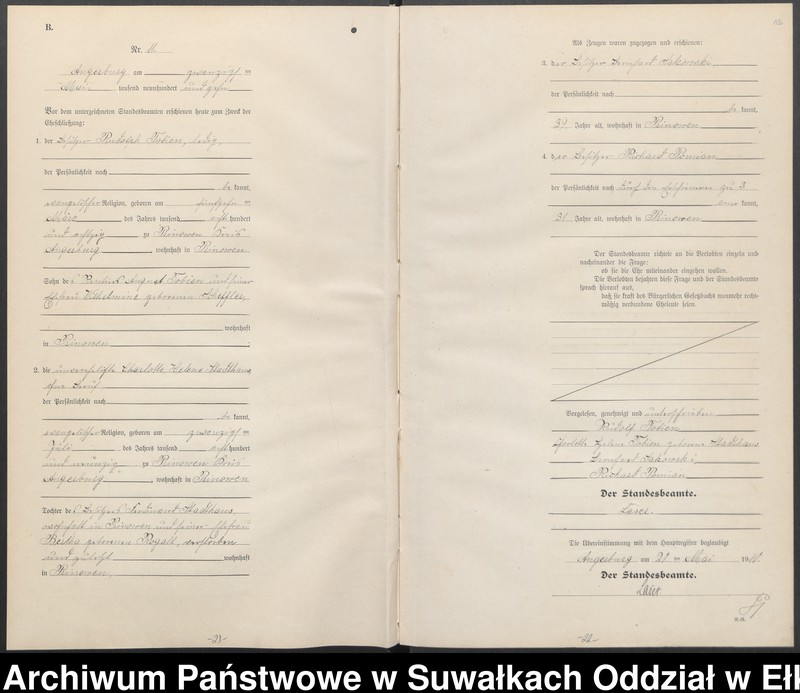 B.
Nr. 11
Angerburg am zwanzigsten
Mai tausend neunhundert und zehn
Vor dem unterzeichneten Standesbeamten erschienen heute zum Zweck der
Eheschließung:
1. der Besitzer Rudolf Tobien, ledig,
der Persönlichkeit nach
be kannt,
evangelischer Religion, geboren am fünfzehnten
März des Jahres tausend acht hundert
und achtzig zu Prinowen Kreis
Angerburg, wohnhaft in Prinowen
Sohn des Rentiers August Tobien und seiner
Ehefrau Wilhelmine geborenen
wohnhaft
in Prinowen
2. die unverehelichte Charlotte Helene Madthaus
ohne Beruf
der Persönlichkeit nach
be kannt,
evangelischer Religion, geboren am zwanzigsten
Juli des Jahres tausend acht hundert
und neunzig zu Prinowen Kreis
Angerburg, wohnhaft in Prinowen
Tochter des Besitzers Ferdinand Madthaus,
wohnhaft in Prinowen und seiner Ehefrau
Bertha geborenen Rogall, verstorben
und zuletzt wohnhaft
in Prinowen.
-21-
Als Zeugen waren zugezogen und erschienen:
3. der Besitzer
der Persönlichkeit nach
be kannt,
39 Jahre alt, wohnhaft in Prinowen
4. der Besitzer Richard Romian
der Persönlichkeit nach durch den Erschienenen zu 3
aner kannt,
31 Jahre alt, wohnhaft in Prinowen
Der Standesbeamte richtete an die Verlobten einzeln und
nacheinander die Frage:
ob sie die Ehe miteinander eingehen wollen.
Die Verlobten bejahten diese Frage und der Standesbeamte
sprach hierauf aus,
daß sie kraft des Bürgerlichen Gesetzbuchs nunmehr recht-
mäßig verbundene Eheleute seien.
Vorgelesen, genehmigt und unterschrieben
Rudolf Tobien
Charlotte Helene Tobien geborene Madthaus
Richard Romian
Der Standesbeamte.
Laser.
Die Übereinstimmung mit dem Hauptregister beglaubigt
Angerburg am 21 ten Mai 1910.
Der Standesbeamte.
Laser
-22-
Archiwum Państwowe w Suwałkach Oddział w Eł